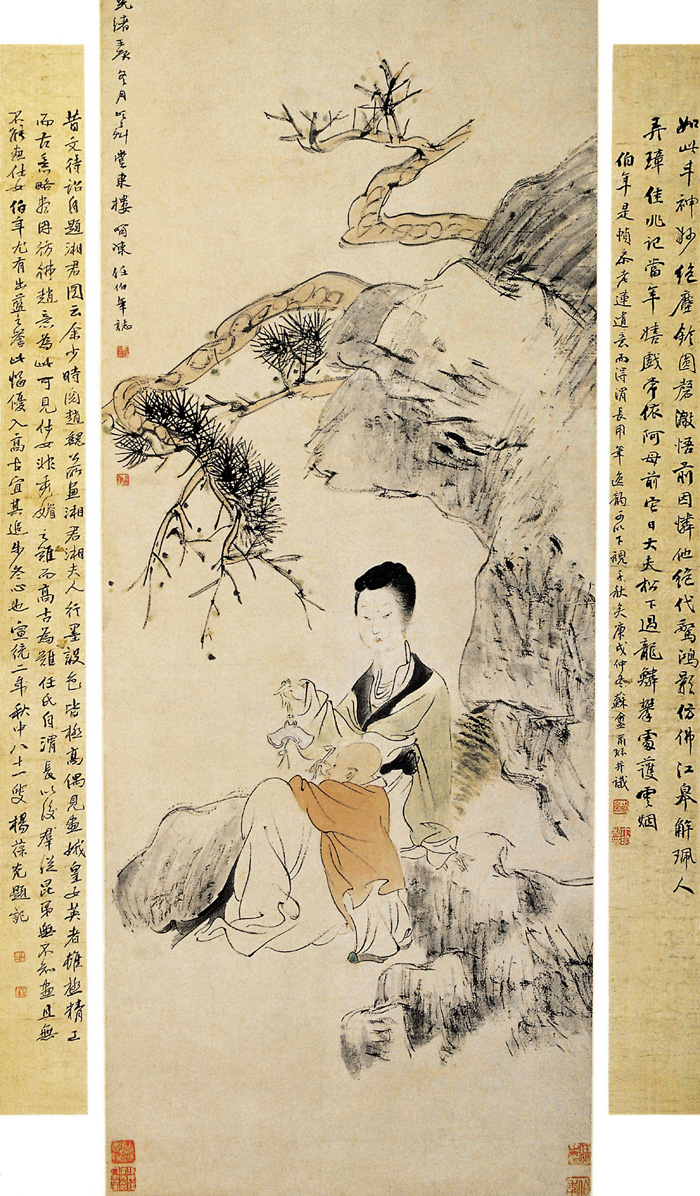 如此丰神妙絕塵鈴圓磬澈悟前因憐他絕代驚鴻影仿佛江皋解珮人
弄璋佳兆記當年嬉戲常依阿母前它日大夫松下過龍鱗攀處護雲烟
伯年是幀希老蓮遺意而得渭長用筆逸韵可以下視千秋矣庚戌仲冬蘇盦并識
光緒冬月艸堂東樓呵凍任伯年誌
昔文待詔自題湘君圖云余少時閱趙魏公所畫湘君湘夫人行墨設色皆極高偶見畫娥皇女英者雖極精工
而古意略盡因彷彿趙意為此可見仕女非秀媚之難而高古為難任氏自渭長以後群從昆弟無不知畫且無
不能畫仕女伯年尤有出藍之譽此幅優入高古宜其進步冬心也宣統二年秋中八十一叟楊葆光題記